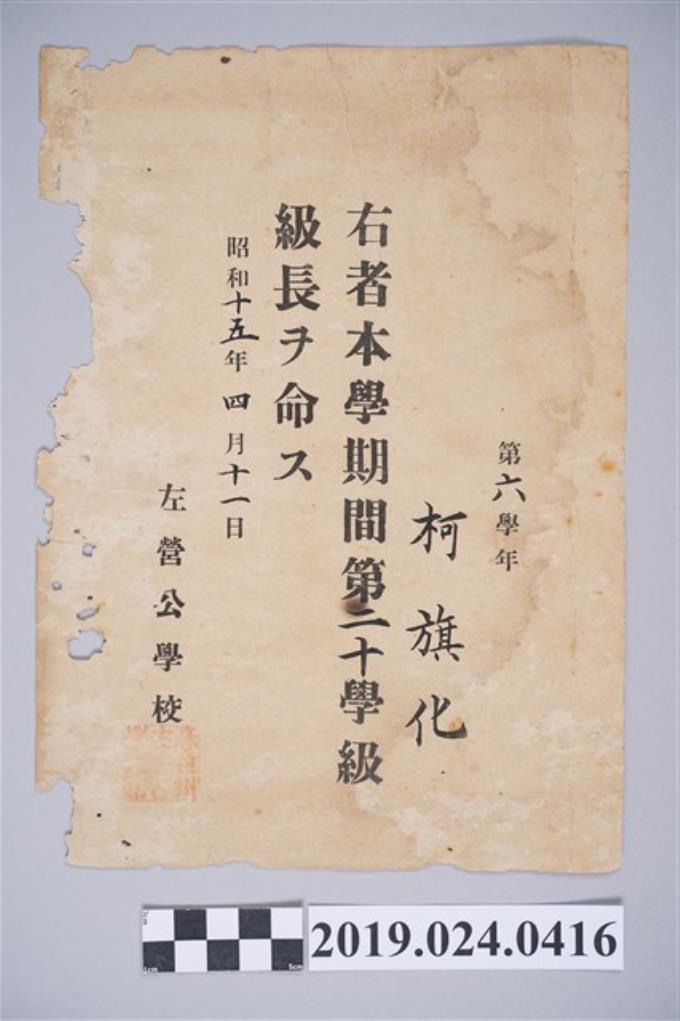 第六學年
柯旗化
右者本學期間第二十學級
級長ヲ命ス
昭和十五年四月十一日
左營公學校
2019.024.0416